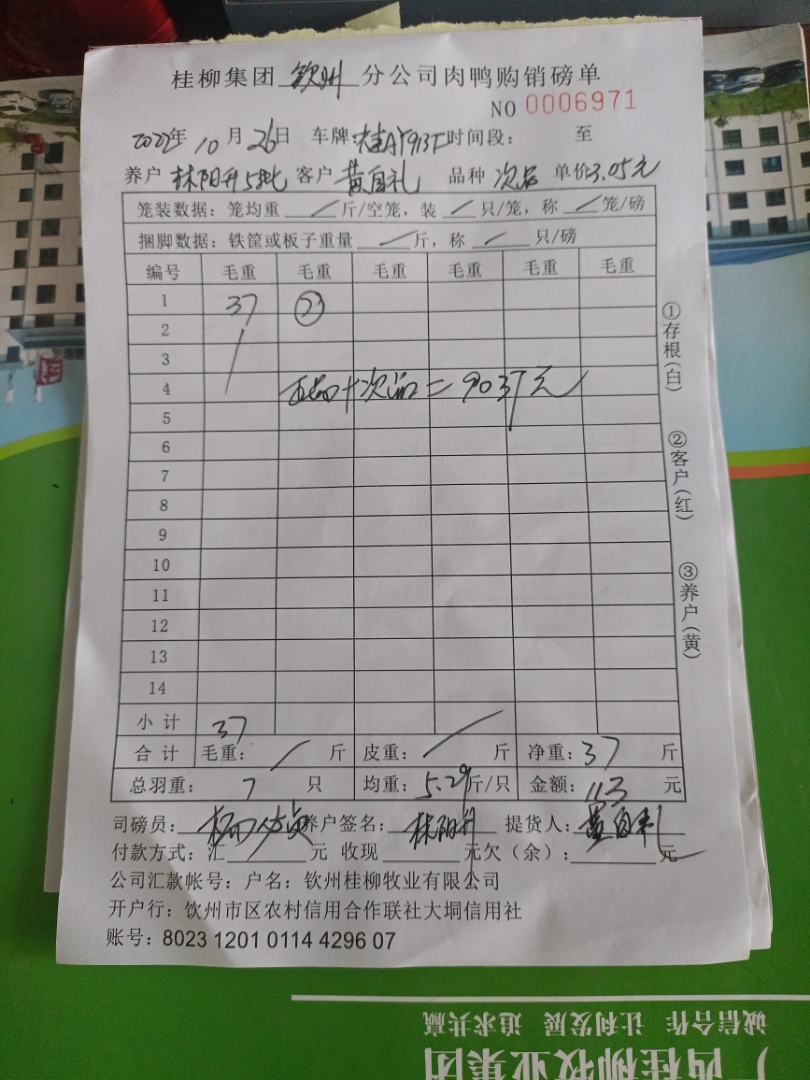 桂柳集团 钦州 分公司肉鸭购销磅单
NO 0006971
2022年 10月 26日 车牌: 时间段: 至
养户 林阳升5批 客户 黄自礼 品种 次品 单价3.05元
笼装数据: 笼均重 / 斤/空笼, 装 / 只/笼, 称 / 笼/磅
捆脚数据: 铁筐或板子重量 / 斤, 称 / 只/磅
编号 毛重 毛重 毛重 毛重 毛重 毛重
1 37
2
3
4 正品+次品=9037元
5
6
7
8
9
10
11
12
13
14
小计 37
合计 毛重: / 斤 皮重: / 斤 净重: 37 斤
总羽重: 7 只 均重: 5.29斤/只 金额: 113 元
司磅员: 养户签名: 林阳升 提货人: 黄自礼
付款方式: 汇 元 收现 元欠(余): 元
公司汇款帐号: 户名: 钦州桂柳牧业有限公司
开户行: 钦州市区农村信用合作联社大垌信用社
账号: 8023 1201 0114 4296 07
①存根(白)
②客户(红)
③养户(黄)
诚信合作 让利发展 追求共赢
广西桂柳牧业集团